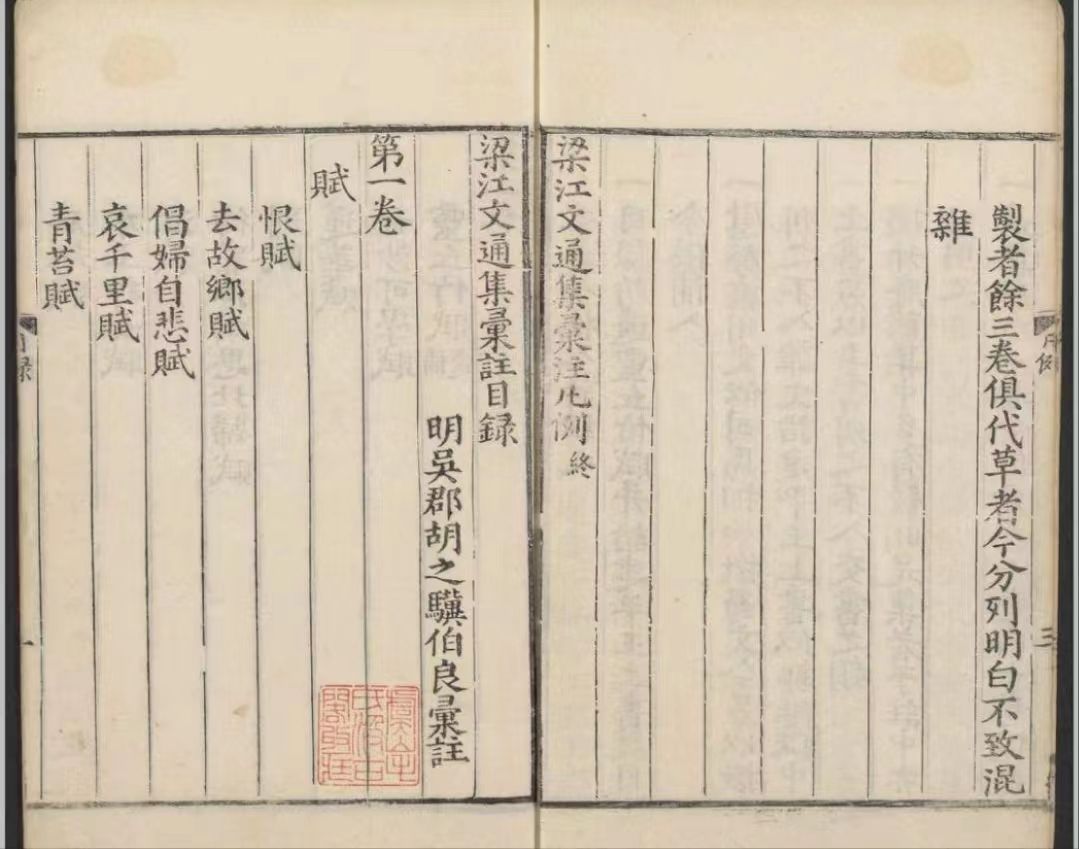 製者餘三卷俱代草者今分列明白不致混
雜
梁江文通集彙注凡例終
序例
三
梁江文通集彙註目録
明吳郡胡之驥伯良彙註
第一卷
賦
恨賦
去故鄉賦
倡婦自悲賦
哀千里賦
青苔賦
目録
一